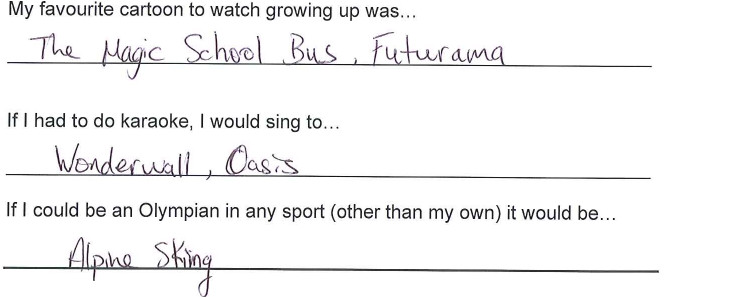 My favourite cartoon to watch growing up was...
The Magic School Bus, Futurama
If I had to do karaoke, I would sing to...
Wonderwall, Oasis
If I could be an Olympian in any sport (other than my own) it would be...
Alpine Skiing